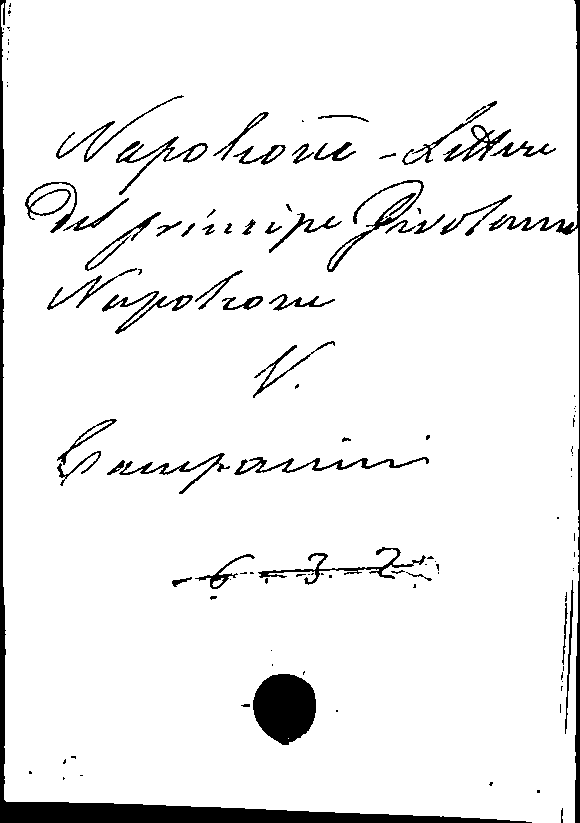 Napoleone - Lettere
del principe Girolamo
Napoleone
V.
Campanini
6. 3. 2